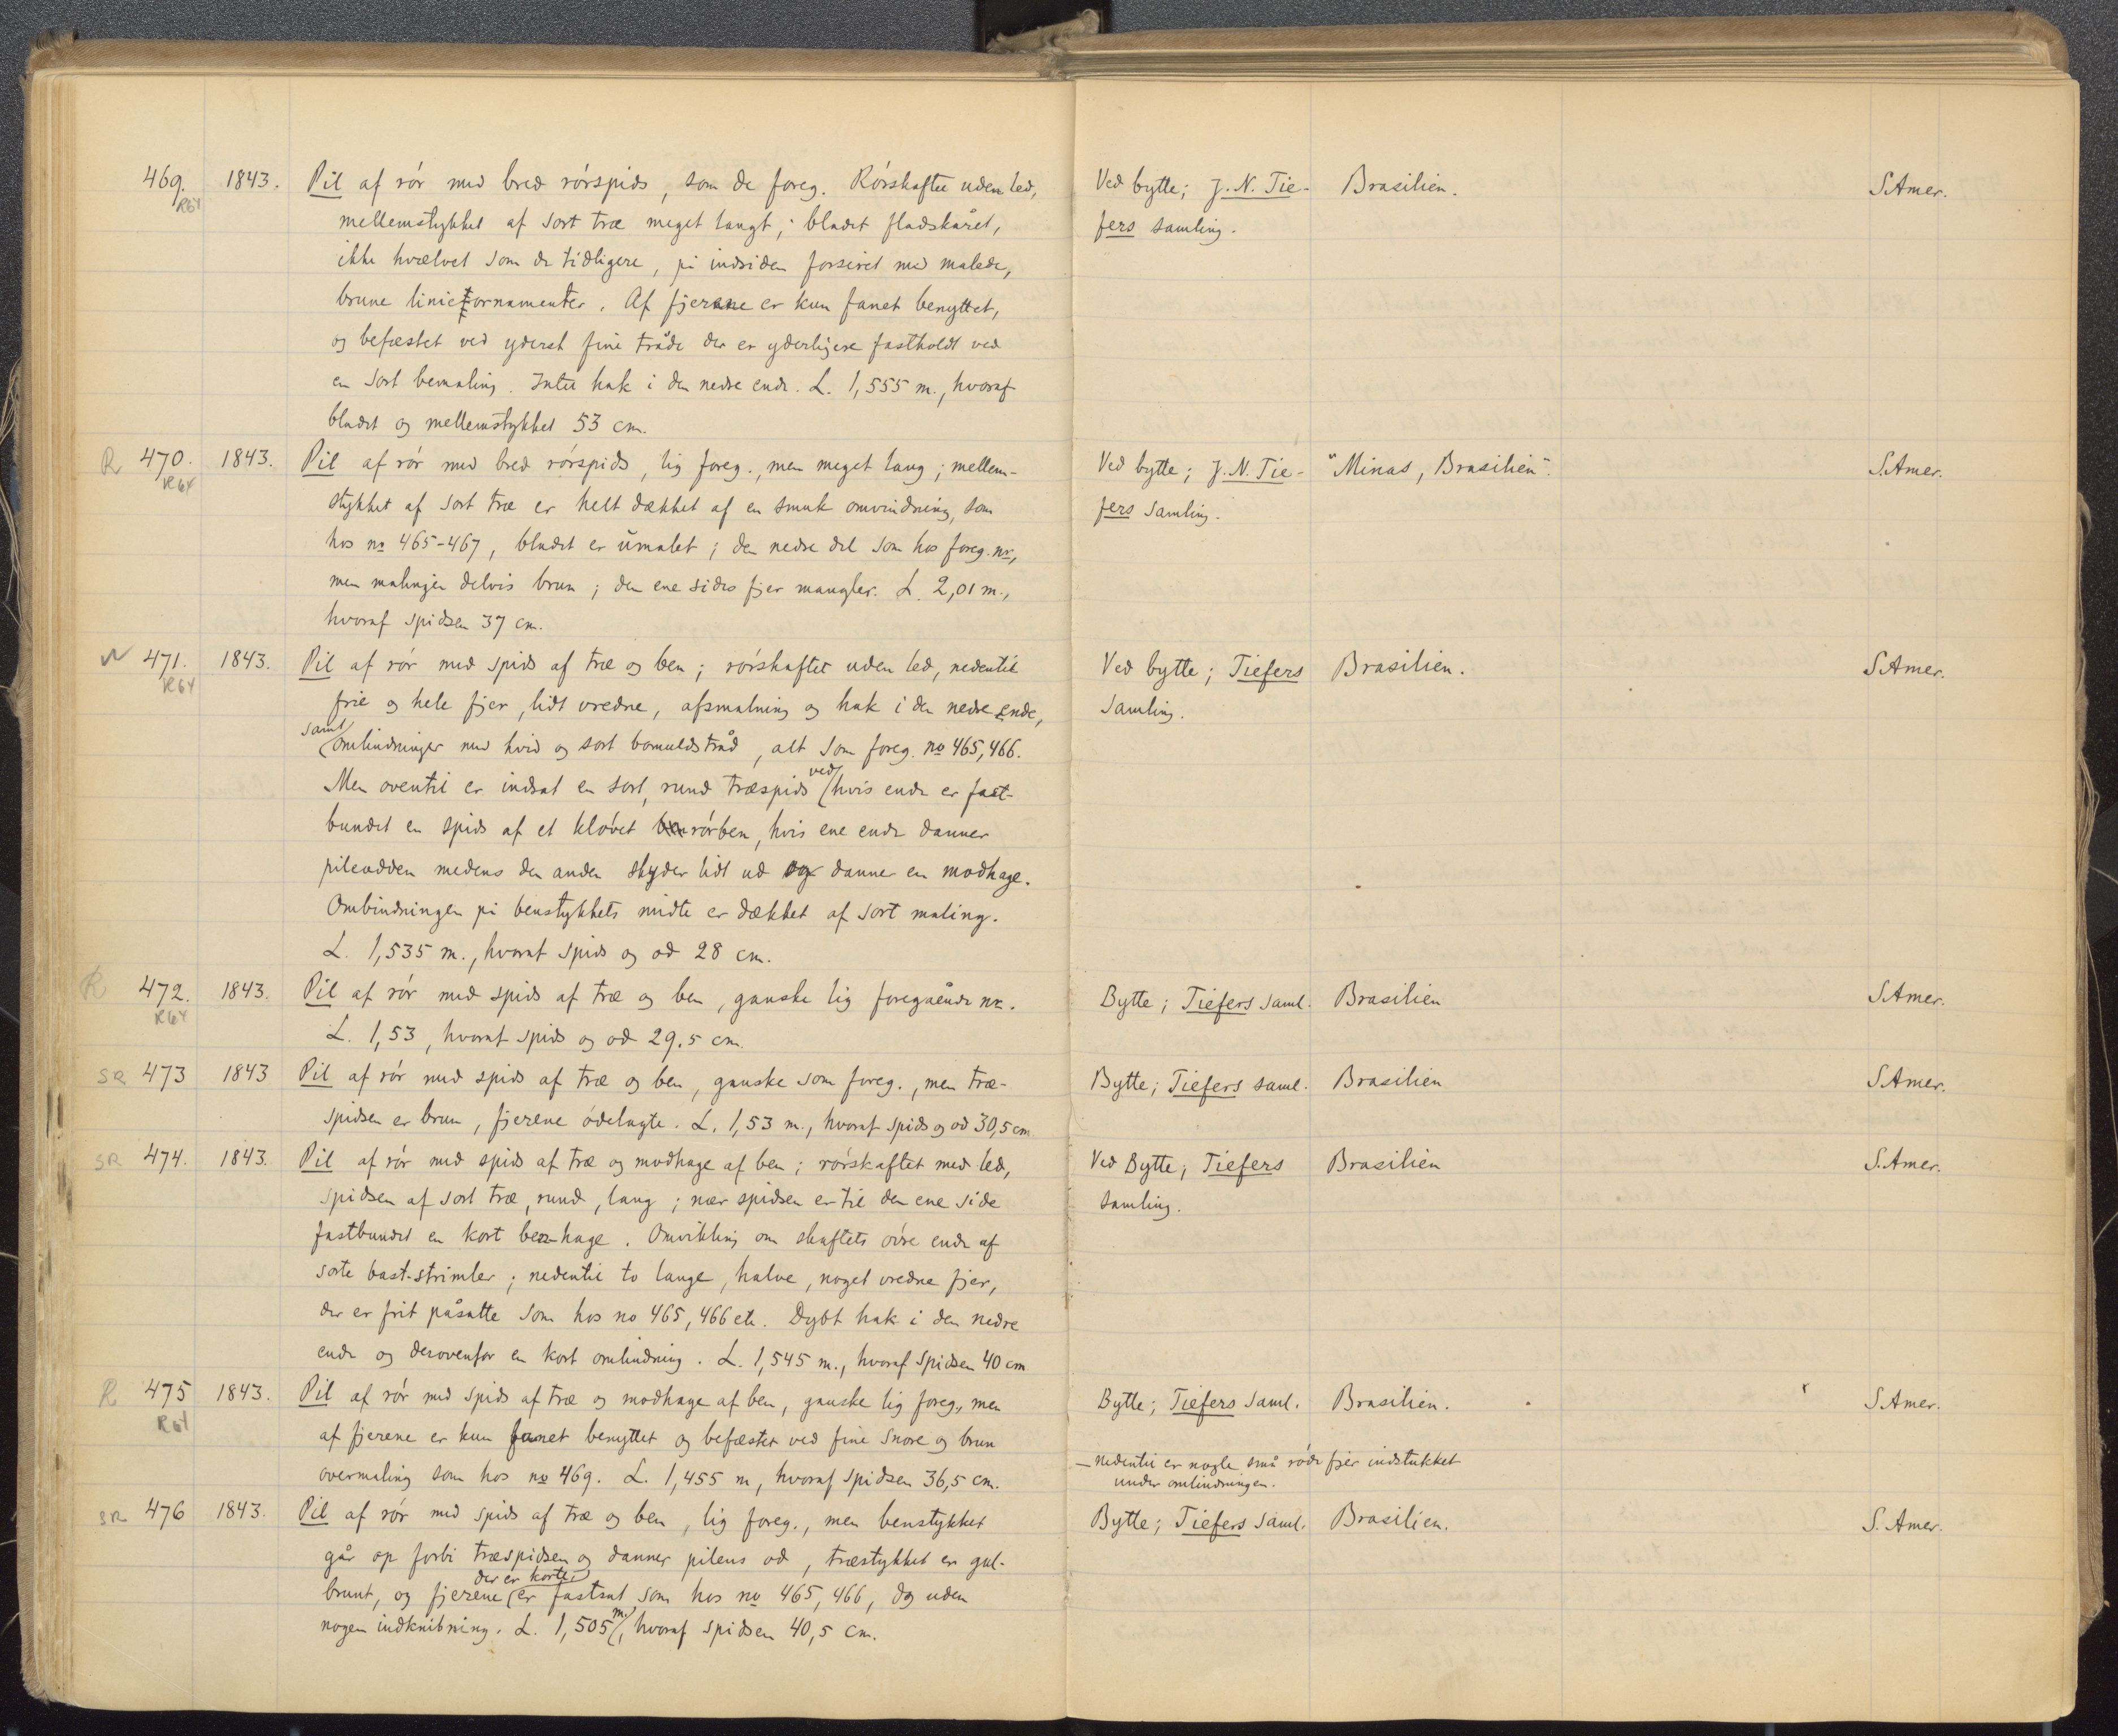 469. 1843. Pil af rór med bred rórspids, som de foreg. Rórskaftet uden led, Ved bytte; J. N. Tie- Brasilien. S.Amer.
R64 mellemstykket af sort træ meget langt; bladet fladskåret, fers samling.
ikke hvælvet som de tidligere, på indsiden forsiret med malede,
brune linieornamenter. Af fjerene er kun fanet benyttet,
og befæstet ved yderst fine tråde der er yderligere fastholdt ved
en sort bemaling. Intet hak i den nedre ende. L. 1,555 m., hvoraf
bladet og mellemstykket 53 cm.
R 470. 1843. Pil af rór med bred rórspids, lig foreg., men meget lang; mellem- Ved bytte; J. N. Tie- "Minas, Brasilien". S.Amer.
R64 stykket af sort træ er helt dækket af en smuk omvindning, som fers samling.
hos no 465-467, bladet er umalet; den nedre del som hos foreg. nr,
men malingen delvis brun; den ene sides fjer mangler. L. 2,01 m.,
hvoraf spidsen 37 cm.
471. 1843. Pil af rór med spids af træ og ben; rórskaftet uden led, nedentil Ved bytte; Tiefers Brasilien. S.Amer.
R64 frie og hele fjer, lidt vredne, afsmalning og hak i den nedre ende, samling.
samt omvindninger med hvid og sort bomuldstråd, alt som foreg. no 465, 466.
Men oventil er indsat en sort, rund træspids ved hvis ende er fast-
bundet en spids af et klóvet rórben, hvis ene ende danner
pileodden medens den anden skyder lidt ud og danner en modhage.
Ombindningen på benstykkets midte er dækket af sort maling.
L. 1,535 m., hvoraf spids og od 28 cm.
R 472. 1843. Pil af rór med spids af træ og ben, ganske lig foregående nr. Bytte; Tiefers saml. Brasilien S.Amer.
R64 L. 1,53, hvoraf spids og od 29.5 cm.
SR 473 1843 Pil af rór med spids af træ og ben, ganske som foreg., men træ- Bytte; Tiefers saml. Brasilien S.Amer.
spidsen er brun, fjerene ódelagte. L. 1,53 m., hvoraf spids og od 30,5 cm
SR 474. 1843. Pil af rór med spids af træ og modhage af ben; rórskaftet med led, Ved Bytte; Tiefers Brasilien S.Amer.
spidsen af sort træ, rund, lang; nær spidsen er til den ene side samling.
fastbundet en kort ben-hage. Omvikling om skaftets óvre ende af
sorte bast-strimler; nedentil to lange, halve, noget vredne fjer,
der er frit påsatte som hos no 465, 466 etc. Dybt hak i den nedre
ende og derovenfor en kort omvindning. L. 1,545 m., hvoraf spidsen 40 cm
R 475 1843. Pil af rór med spids af træ og modhage af ben, ganske lig foreg., men Bytte; Tiefers saml. Brasilien. S.Amer.
R64 af fjerene er kun fanet benyttet og befæstet ved fine snore og brun
overmaling som hos no 469. L. 1,455 m, hvoraf spidsen 36,5 cm.
— nedentil er nogle små róde fjer indstukket
under omvindningen.
SR 476 1843. Pil af rór med spids af træ og ben, lig foreg., men benstykket Bytte; Tiefers saml. Brasilien. S. Amer.
går op forbi træspidsen og danner pilens od, træstykket er gul-
brunt, og fjerene der er korte, er fastsat som hos no 465, 466, dog uden
nogen indknibning. L. 1,505 m., hvoraf spidsen 40,5 cm.